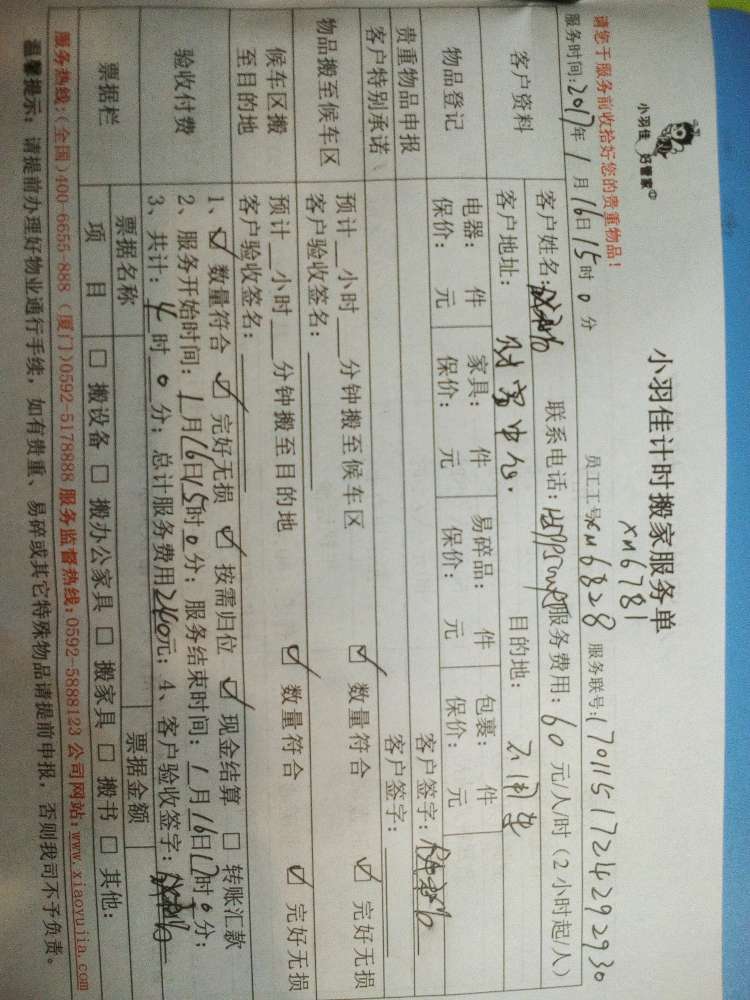 小羽佳 好管家
小羽佳计时搬家服务单
xm6781
请您于服务前收拾好您的贵重物品!
员工工号xm6828 服务联号:1701151724292930
服务时间:2017年1月16日15时0分
客户资料 客户姓名: 联系电话: 服务费用:60元/人/时(2小时起/人)
客户地址: 财富中心. 目的地: 不用要
物品登记 电器: 件 家具: 件 易碎品: 件 包裹: 件
保价: 元 保价: 元 保价: 元 保价: 元
贵重物品申报 客户签字:
客户特别承诺 客户签字:
物品搬至候车区 预计 小时 分钟搬至候车区 ☑ 数量符合 ☑ 完好无损
客户验收签名:
候车区搬至目的地 预计 小时 分钟搬至目的地 ☑ 数量符合 ☑ 完好无损
客户验收签名:
验收付费 1、☑ 数量符合 ☑ 完好无损 ☑ 按需归位 ☑ 现金结算 □ 转账汇款
2、服务开始时间:1月16日15时0分;服务结束时间:1月16日17时0分;
3、共计:4时0分;总计服务费用240元;4、客户验收签字:
票据栏 票据名称 票据金额
项 目 □ 搬设备 □ 搬办公家具 □ 搬家具 □ 搬书 □ 其他:
服务热线:(全国)400-6655-888 (厦门)0592-5178888 服务监督热线:0592-5888123 公司网站:www.xiaoyujia.com
温馨提示:请提前办理好物业通行手续,如有贵重、易碎或其它特殊物品请提前申报,否则我司不予负责。